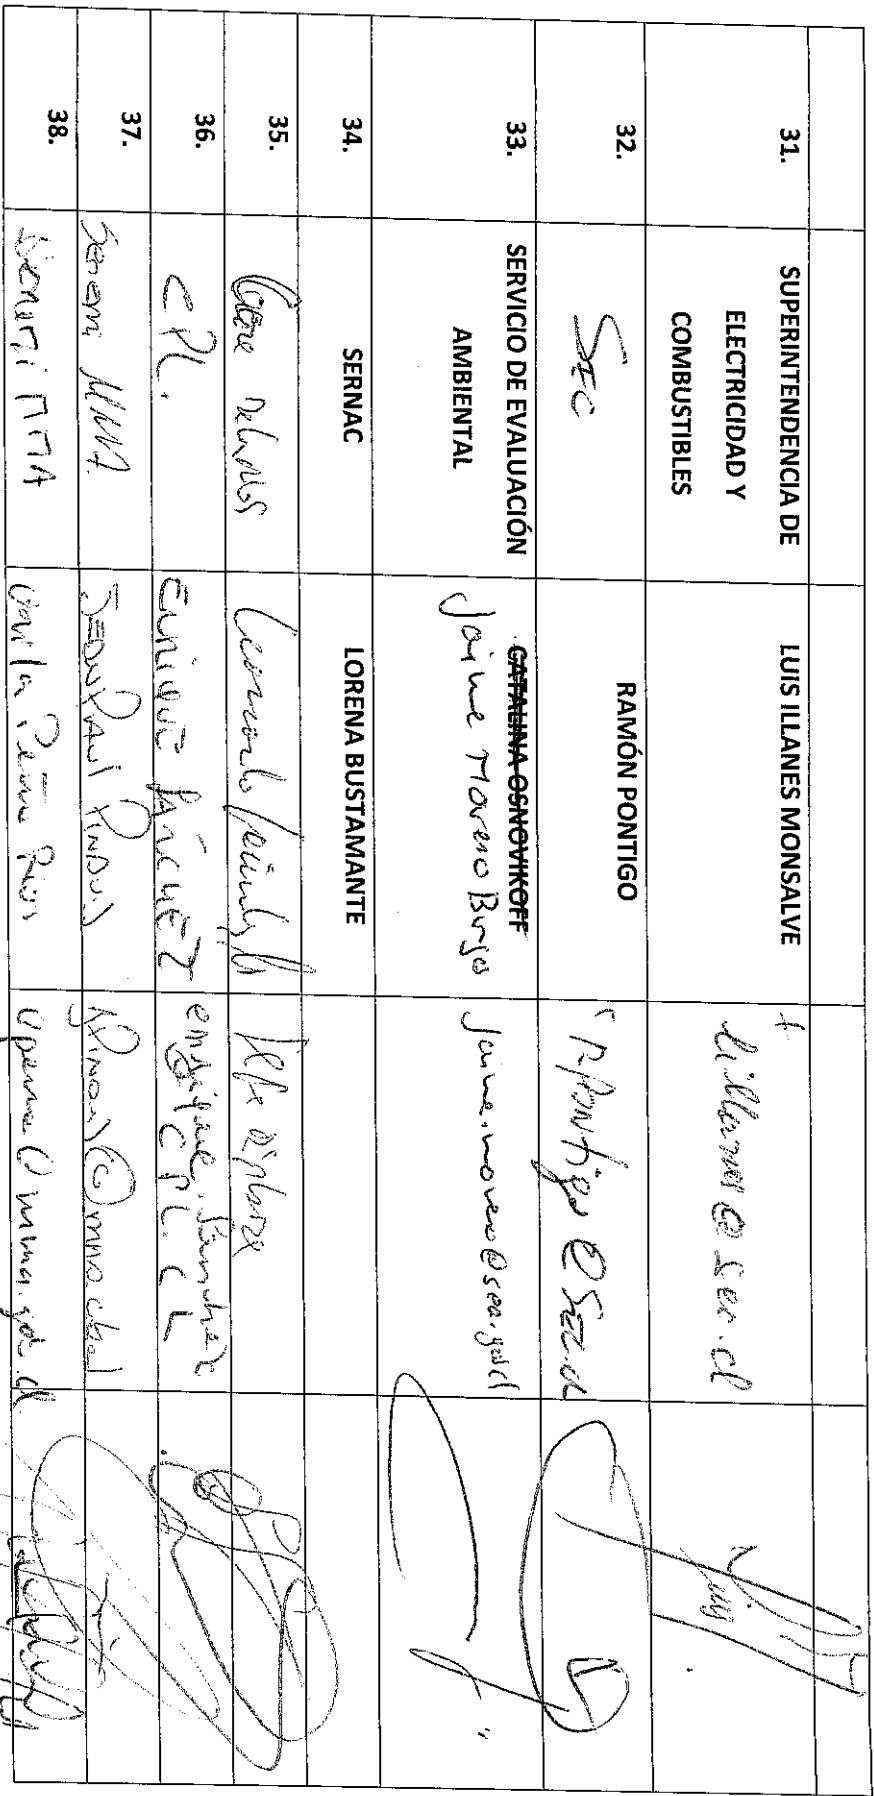 31.
SUPERINTENDENCIA DE
ELECTRICIDAD Y
COMBUSTIBLES
LUIS ILLANES MONSALVE
lillanes@sec.cl
32.
SEC
RAMÓN PONTIGO
rpontigo@sec.cl
33.
SERVICIO DE EVALUACIÓN
AMBIENTAL
CATALINA OSNOVIKOFF
Jaime Moreno Burgos
jaime.moreno@sea.gob.cl
34.
SERNAC
LORENA BUSTAMANTE
35.
Gore
Leonardo
Jefe
36.
CPL.
ENRIQUE SÁNCHEZ
enrique.sanchez
@CPL.CL
37.
Seremi MMA
38.
SEREMI MMA
Peña Ríos
@mma.gob.cl